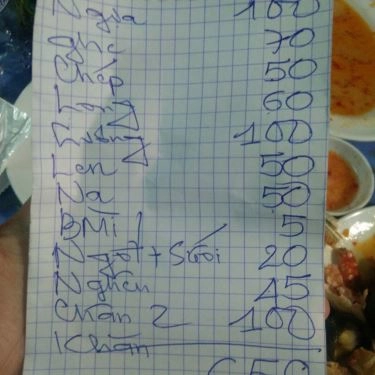 Ngựa 100
ghẹ 70
Chép 50
60
100
Len 50
Na 50
BMì 1 5
Ngọt + Suối 20
Nghêu 45
Chân 2 100
Khăn
650